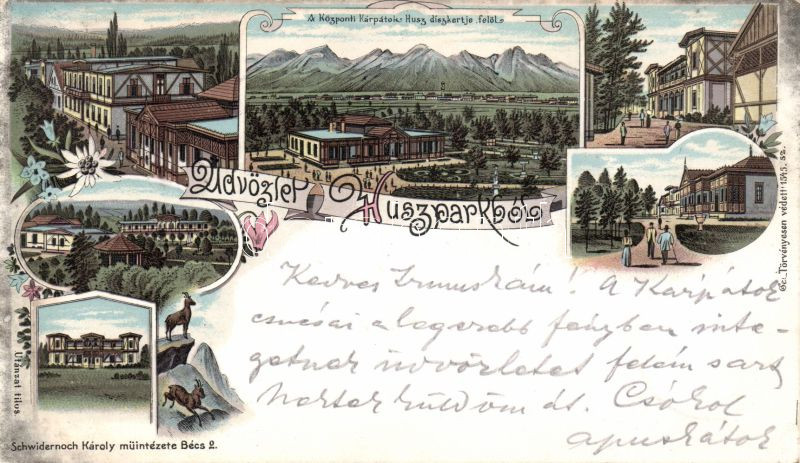 A Központi Kárpátok Husz díszkertje felől.
Üdvözlet Huszparkból
Gc. „Törvényesen védett” 1545. sz.
Kedves Irmuskám! A Kárpátok
csúcsai a legszebb fényben inte-
getnek üdvözletet felém s azt
Nektek küldöm át. Csókol
apuskátok
Utánzat tilos.
Schwidernoch Károly müintézete Bécs 2.